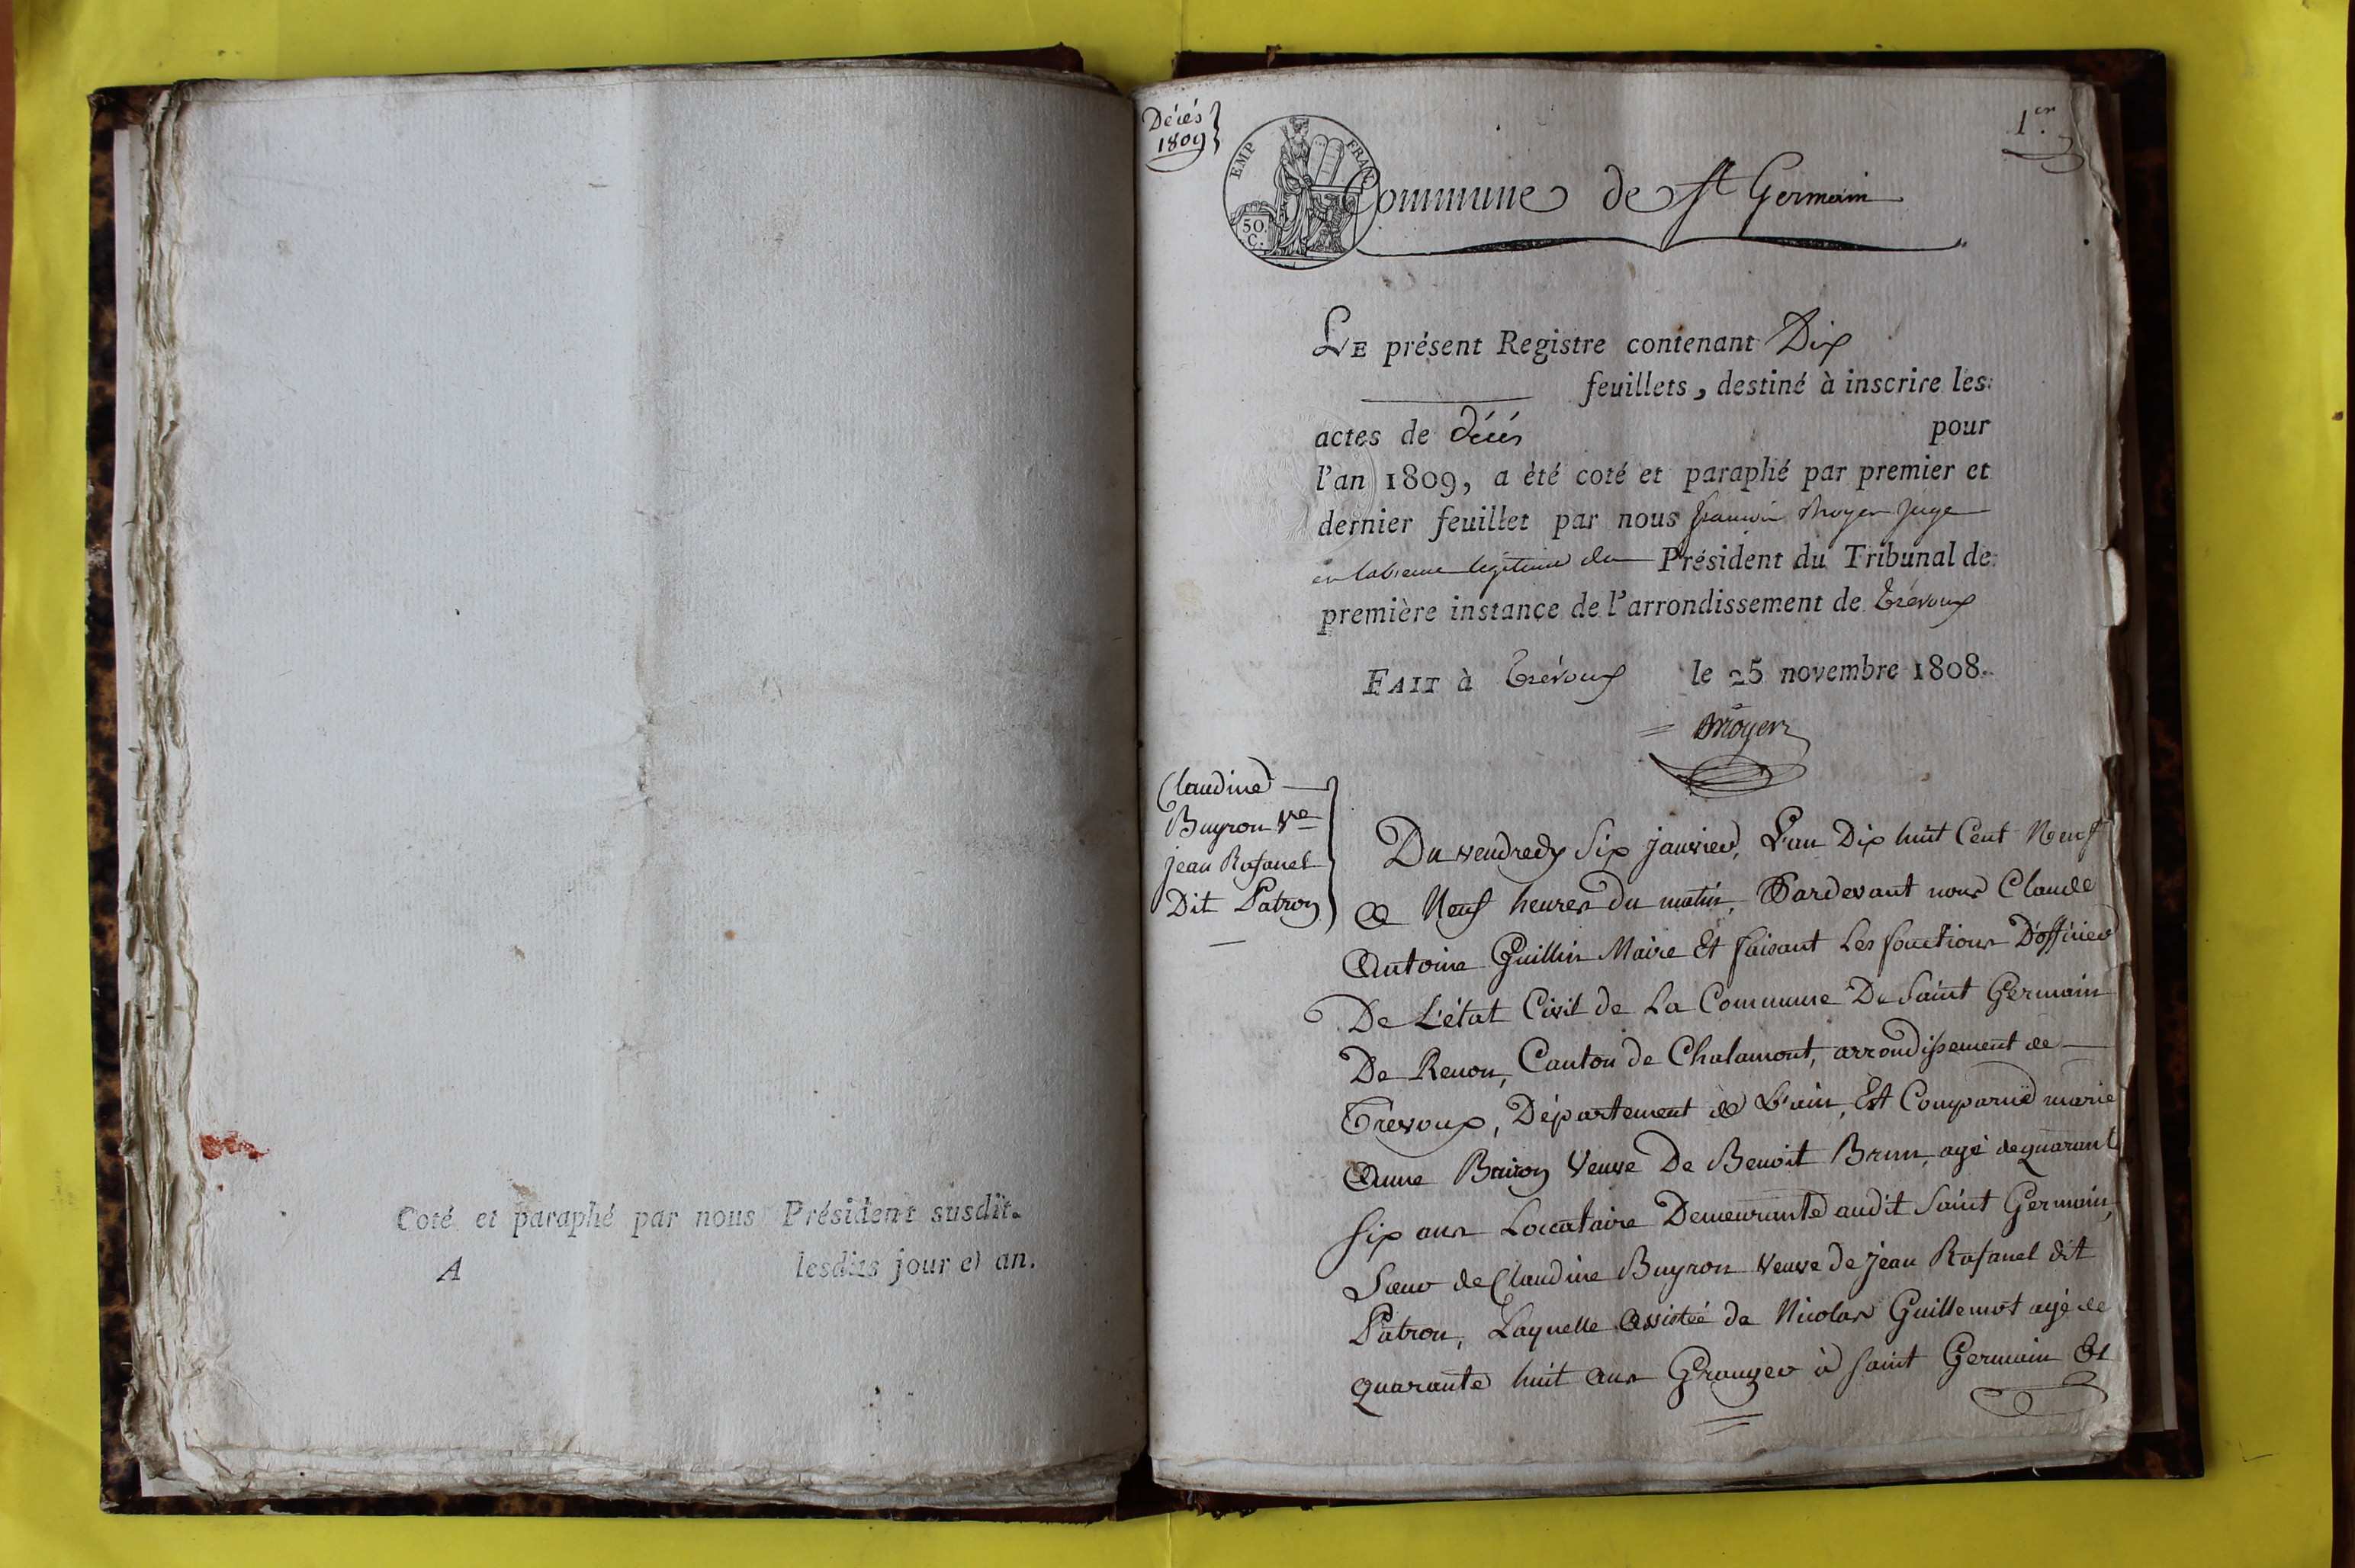 Coté et paraphé par nous Président susdit.
A lesdits jour et an.
Décés
1809
1er.
EMP FRAN
50.
C.
Commune de St Germain
LE présent Registre contenant Dix
feuillets, destiné à inscrire les
actes de décés pour
l'an 1809, a été coté et paraphé par premier et
dernier feuillet par nous françois Moyer juge
en labsence légitime du Président du Tribunal de
première instance de l'arrondissement de Trévoux
FAIT à Trévoux le 25 novembre 1808.
Moyer
Claudine
Buyron Ve
jean Rafanel
Dit Patron
Du vendredy Six janvier, L'an Dix huit Cent Neuf
a Neuf heures Du matin, Pardevant nous Claude
Antoine Guillin Maire Et faisant Les fonctions D'officier
De L'état Civil de La Commune De Saint Germain
De Renon, Canton de Chalamont, arrondissement de
Trévoux, Département de L'ain, Est Comparuë marie
Anne Buiron Veuve De Benoit Brun, agé de quarante
Six ans Locataire Demeurante audit Saint Germain,
Sœur de Claudine Buyron Veuve de jean Rafanel dit
Patron, Laquelle assistée de Nicolas Guillemot agé de
quarante huit ans Granger à Saint Germain Et